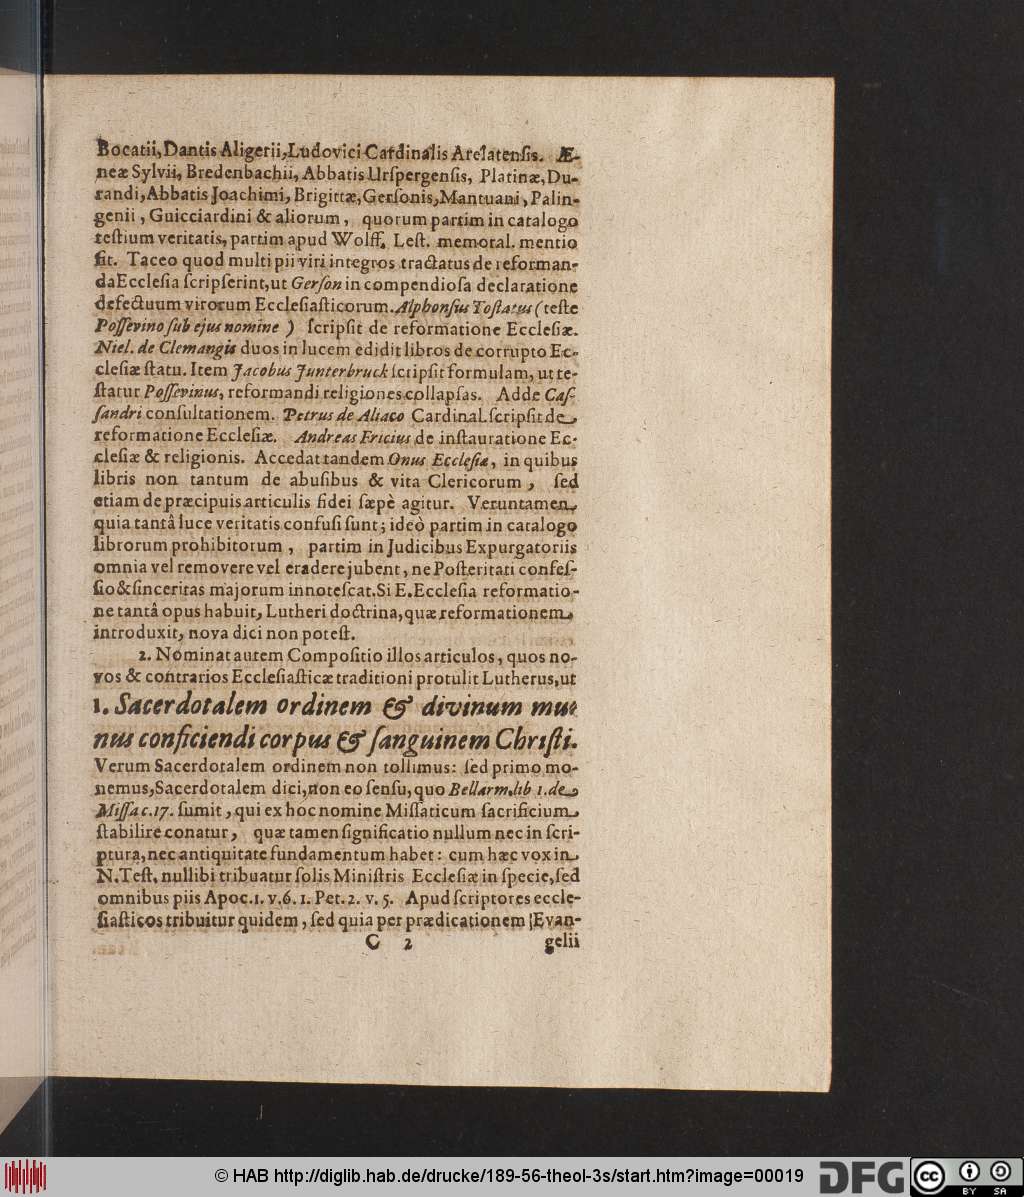 Bocatii, Dantis Aligerii, Ludovici Cardinalis Arelatensis. Æ-
neæ Sylvii, Bredenbachii, Abbatis Urſpergenſis, Platinæ, Du-
randi, Abbatis Joachimi, Brigittæ, Gerſonis, Mantuani, Palin-
genii, Guicciardini & aliorum, quorum partim in catalogo
teſtium veritatis, partim apud Wolff. Leſt. memoral. mentio
fit. Taceo quod multi pii viri integros tractatus de reforman-
da Eccleſia ſcripſerint, ut Gerſon in compendioſa declaratione
defectuum virorum Eccleſiaſticorum. Alphonſius Toſtatus (teſte
Poſſevino ſub ejus nomine) ſcripſit de reformatione Eccleſiæ.
Niel. de Clemangis duos in lucem edidit libros de corrupto Ec-
cleſiæ ſtatu. Item Jacobus Junterbruck ſcripſit formulam, ut te-
ſtatur Poſſevinus, reformandi religiones collapſas. Adde Caſ-
ſandri conſultationem. Petrus de Aliaco Cardinal. ſcripſit de
reformatione Eccleſiæ. Andreas Fricius de inſtauratione Ec-
cleſiæ & religionis. Accedat tandem Onus Eccleſiæ, in quibus
libris non tantum de abuſibus & vita Clericorum, ſed
etiam de præcipuis articulis fidei ſæpè agitur. Veruntamen
quia tantâ luce veritatis confuſi ſunt; ideò partim in catalogo
librorum prohibitorum, partim in Judicibus Expurgatoriis
omnia vel removere vel eradere jubent, ne Poſteritati confeſ-
ſio & ſinceritas majorum innoteſcat. Si E. Eccleſia reformatio-
ne tantâ opus habuit, Lutheri doctrina, quæ reformationem
introduxit, nova dici non poteſt.
2. Nominat autem Compoſitio illos articulos, quos no-
vos & contrarios Eccleſiaſticæ traditioni protulit Lutherus, ut
1. Sacerdotalem ordinem & divinum mu-
nus conficiendi corpus & ſanguinem Chriſti.
Verum Sacerdotalem ordinem non tollimus: ſed primo mo-
nemus, Sacerdotalem dici, non eo ſenſu, quo Bellarm. lib 1. de
Miſſa c. 17. ſumit, qui ex hoc nomine Miſſaticum ſacrificium
ſtabilire conatur, quæ tamen ſignificatio nullum nec in ſcri-
ptura, nec antiquitate fundamentum habet: cum hæc vox in
N. Teſt. nullibi tribuatur ſolis Miniſtris Eccleſiæ in ſpecie, ſed
omnibus piis Apoc. 1. v. 6. 1. Pet. 2. v. 5. Apud ſcriptores eccle-
ſiaſticos tribuitur quidem, ſed quia per prædicationem Evan-
C 2 gelii
© HAB http://diglib.hab.de/drucke/189-56-theol-3s/start.htm?image=00019 DFG cc BY SA